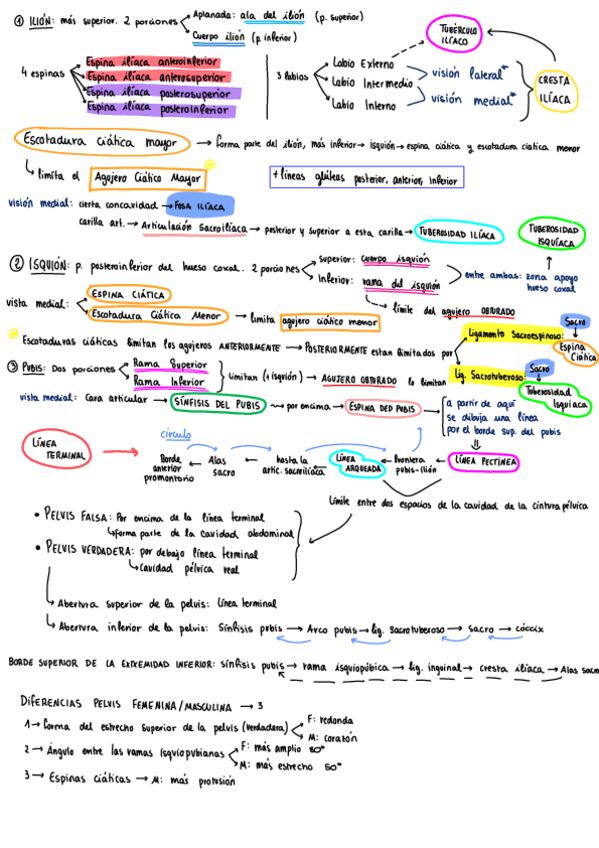 ① ILIÓN: más superior. 2 porciones
Aplanada: ala del ilión (p. superior)
Cuerpo ilión (p. inferior)
TUBÉRCULO ILÍACO
4 espinas
Espina ilíaca anteroinferior
Espina ilíaca anterosuperior
Espina ilíaca posterosuperior
Espina ilíaca posteroinferior
3 labios
Labio Externo
Labio Intermedio
Labio Interno
visión lateral*
visión medial*
CRESTA ILÍACA
Escotadura ciática mayor → forma parte del ilión, más inferior → isquión → espina ciática y escotadura ciatica menor
limita el Agujero Ciático Mayor
+ líneas glúteas posterior, anterior, inferior
visión medial: cierta concavidad → FOSA ILÍACA
carilla art. → Articulación sacroilíaca → posterior y superior a esta carilla → TUBEROSIDAD ILÍACA
TUBEROSIDAD ISQUÍACA
② ISQUIÓN: p. posteroinferior del hueso coxal. 2 porciones
Superior: cuerpo isquión
Inferior: rama del isquión
entre ambas: zona apoyo hueso coxal
límite del agujero OBTURADO
vista medial:
ESPINA CIÁTICA
Escotadura Ciática Menor → limita agujero ciático menor
Escotaduras ciáticas limitan los agujeros ANTERIORMENTE → POSTERIORMENTE estan limitados por
Ligamento Sacroespinoso:
Sacro
Espina Ciática
Lig. Sacrotuberoso:
Sacro
Tuberosidad Isquiaca
③ PUBIS: Dos porciones
Rama Superior
Rama Inferior
limitan (+ isquión) → AGUJERO OBTURADO lo limitan
vista medial: Cara articular → SÍNFISIS DEL PUBIS → por encima → ESPINA DED PUBIS
a partir de aquí
se dibuja una línea
por el borde sup. del pubis
LÍNEA TERMINAL
círculo
Borde anterior promontorio ← Alas sacro ← hasta la artic. sacroilíaca ← LÍNEA ARQUEADA ← Frontera pubis-ilión ← LÍNEA PECTÍNEA
Límite entre dos espacios de la cavidad de la cintura pélvica
• PELVIS FALSA: Por encima de la línea terminal
↳ forma parte de la cavidad abdominal
• PELVIS VERDADERA: por debajo línea terminal
↳ Cavidad pélvica real
→ Abertura superior de la pelvis: Línea terminal
→ Abertura inferior de la pelvis: Sínfisis pubis → Arco pubis → lig. Sacrotuberoso → sacro → cóccix
BORDE SUPERIOR DE LA EXTREMIDAD INFERIOR: sínfisis pubis → rama isquiopúbica → lig. inguinal → cresta ilíaca → Alas sacro
DIFERENCIAS PELVIS FEMENINA/MASCULINA → 3
1 → Forma del estrecho superior de la pelvis (verdadera)
F: redonda
M: corazón
2 → Ángulo entre las ramas isquiopubianas
F: más amplio 80°
M: más estrecho 50°
3 → Espinas ciáticas → M: más protusión